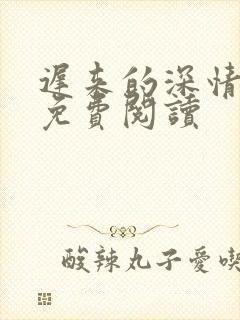 遲來的深情
免費閱讀
酸辣丸子愛喫